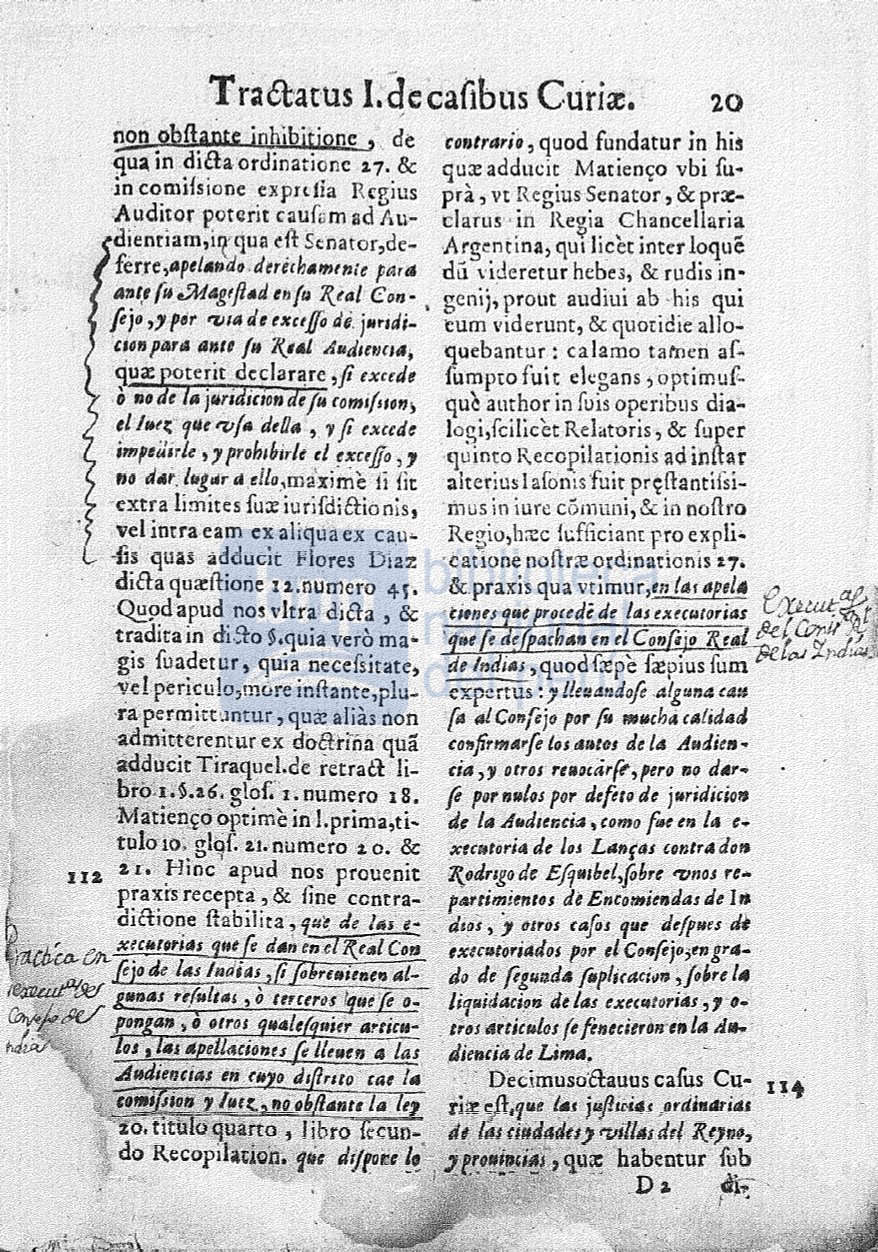 Tractatus I. de casibus Curiæ. 20
non obstante inhibitione, de
qua in dicta ordinatione 27. &
in comissione expressa Regius
Auditor poterit causam ad Au-
dientiam, in qua est Senator, de-
ferre, apelando derechamente para
ante su Magestad en su Real Con-
sejo, y por via de excesso de juridi-
cion para ante su Real Audiencia,
quæ poterit declarare, si excede
ò no de la juridicion de su comission,
el Iuez que vsa della, y si excede
impedirle, y prohibirle el excesso, y
no dar lugar a ello, maximè si sit
extra limites suæ iurisdictionis,
vel intra eam ex aliqua ex cau-
sis quas adducit Flores Diaz
dicta quæstione 12. numero 45.
Quod apud nos vltra dicta, &
tradita in dicto §. quia verò ma-
gis suadetur, quia necessitate,
vel periculo, more instante, plu-
ra permittuntur, quæ aliàs non
admitterentur ex doctrina quã
adducit Tiraquel. de retract li-
bro 1. §. 26. glos. 1. numero 18.
Matienço optimè in l. prima, ti-
tulo 10. glos. 21. numero 20. &
112 21. Hinc apud nos prouenit
praxis recepta, & sine contra-
dictione stabilita, que de las e-
xecutorias que se dan en el Real Con
sejo de las Indias, si sobreuienen al-
gunas resultas, ò terceros que se o-
pongan, ò otros qualesquier articu-
los, las apellaciones se lleuen a las
Audiencias en cuyo distrito cae la
comission y Iuez, no obstante la ley
20. titulo quarto, libro secun-
do Recopilation. que dispone lo
Practica en
execut.as del
Consejo de
Indias
contrario, quod fundatur in his
quæ adducit Matienço vbi su-
prà, vt Regius Senator, & præ-
clarus in Regia Chancellaria
Argentina, qui licèt inter loquẽ
dũ videretur hebes, & rudis in-
genij, prout audiui ab his qui
eum viderunt, & quotidie allo-
quebantur: calamo tamen as-
sumpto fuit elegans, optimus-
què author in suis operibus dia-
logi, scilicèt Relatoris, & super
quinto Recopilationis ad instar
alterius Iasonis fuit pręstantissi-
mus in iure cõmuni, & in nostro
Regio, hæc sufficiant pro expli-
catione nostræ ordinationis 27.
& praxis qua vtimur, en las apela
ciones que procedẽ de las executorias
que se despachan en el Consejo Real
de Indias, quod sæpè sæpius sum
expertus: y lleuandose alguna cau
sa al Consejo por su mucha calidad
confirmarse los autos de la Audien-
cia, y otros reuocarse, pero no dar-
se por nulos por defeto de juridicion
de la Audiencia, como fue en la e-
xecutoria de los Lanças contra don
Rodrigo de Esquibel, sobre vnos re-
partimientos de Encomiendas de In
dios, y otros casos que despues de
executoriados por el Consejo, en gra-
do de segunda suplicacion, sobre la
liquidacion de las executorias, y o-
tros articulos se fenecieron en la Au-
diencia de Lima.
Decimusoctauus casus Cu- 114
riæ est, que las justicias ordinarias
de las ciudades y villas del Reyno,
y prouincias, quæ habentur sub
D 2 di-
Execut.as
del Cons.
de las Indias
biblioteca
nacional
del perú